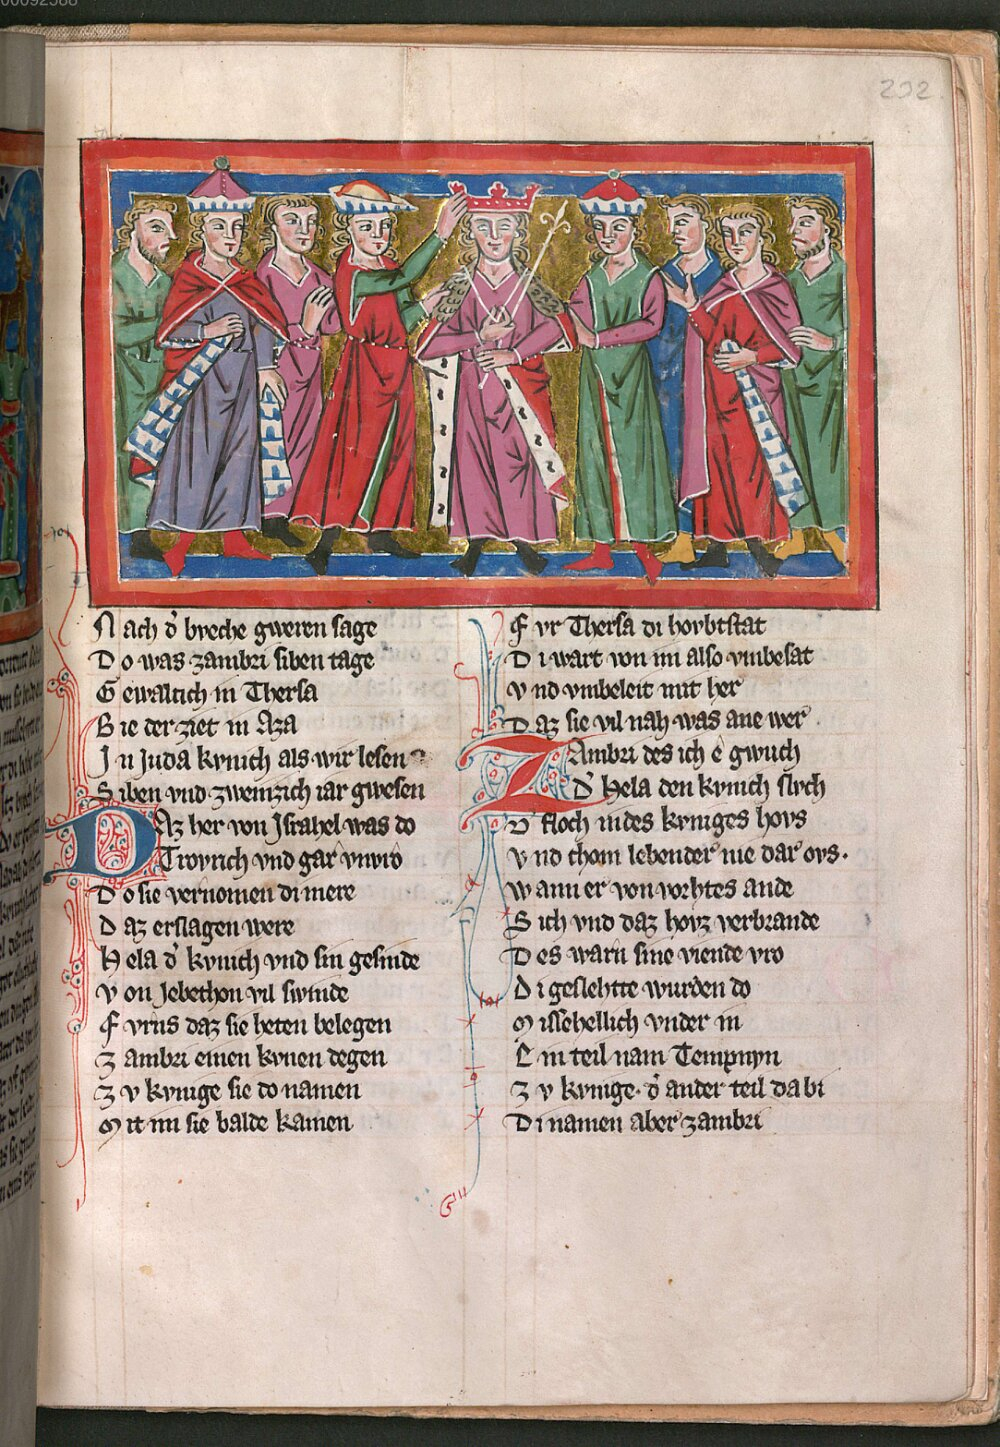 00092568
202
Nach d' bvche gweren sage
Do was zambri siben tage
Gewaltich in Thersa
Bie der ziet in Aza
In Juda kynich als wir lesen
Siben vnd zweinzich iar gwesen
Daz her von Israhel was do
Trovrich vnd gar vnvro
Do sie vernomen di mere
Daz erslagen were
Hela d' kynich vnd sin gesinde
Von Jebethon vil swinde
Fvrns daz sie heten belegen
Zambri einen kvnen degen
Zv kynige sie do namen
Mit im sie balde kamen
Fvr Thersa di hovbtstat
Di wart von im also vmbesat
Vnd vmbeleit mit her
Daz sie vil nah was ane wer
Zambri des ich e gwuch
D' Hela den kynich slvch
Floch in des kyniges hovs
Vnd chom lebender nie dar ovs.
Wann er von vorhtes ande
Sich vnd daz hovz verbrande
Des warn sine viende vro
Di geslehtte wurden do
Missehellich vnder in
Ein teil nam
Zv kynige. d' ander teil da bi
Di namen aber zambri